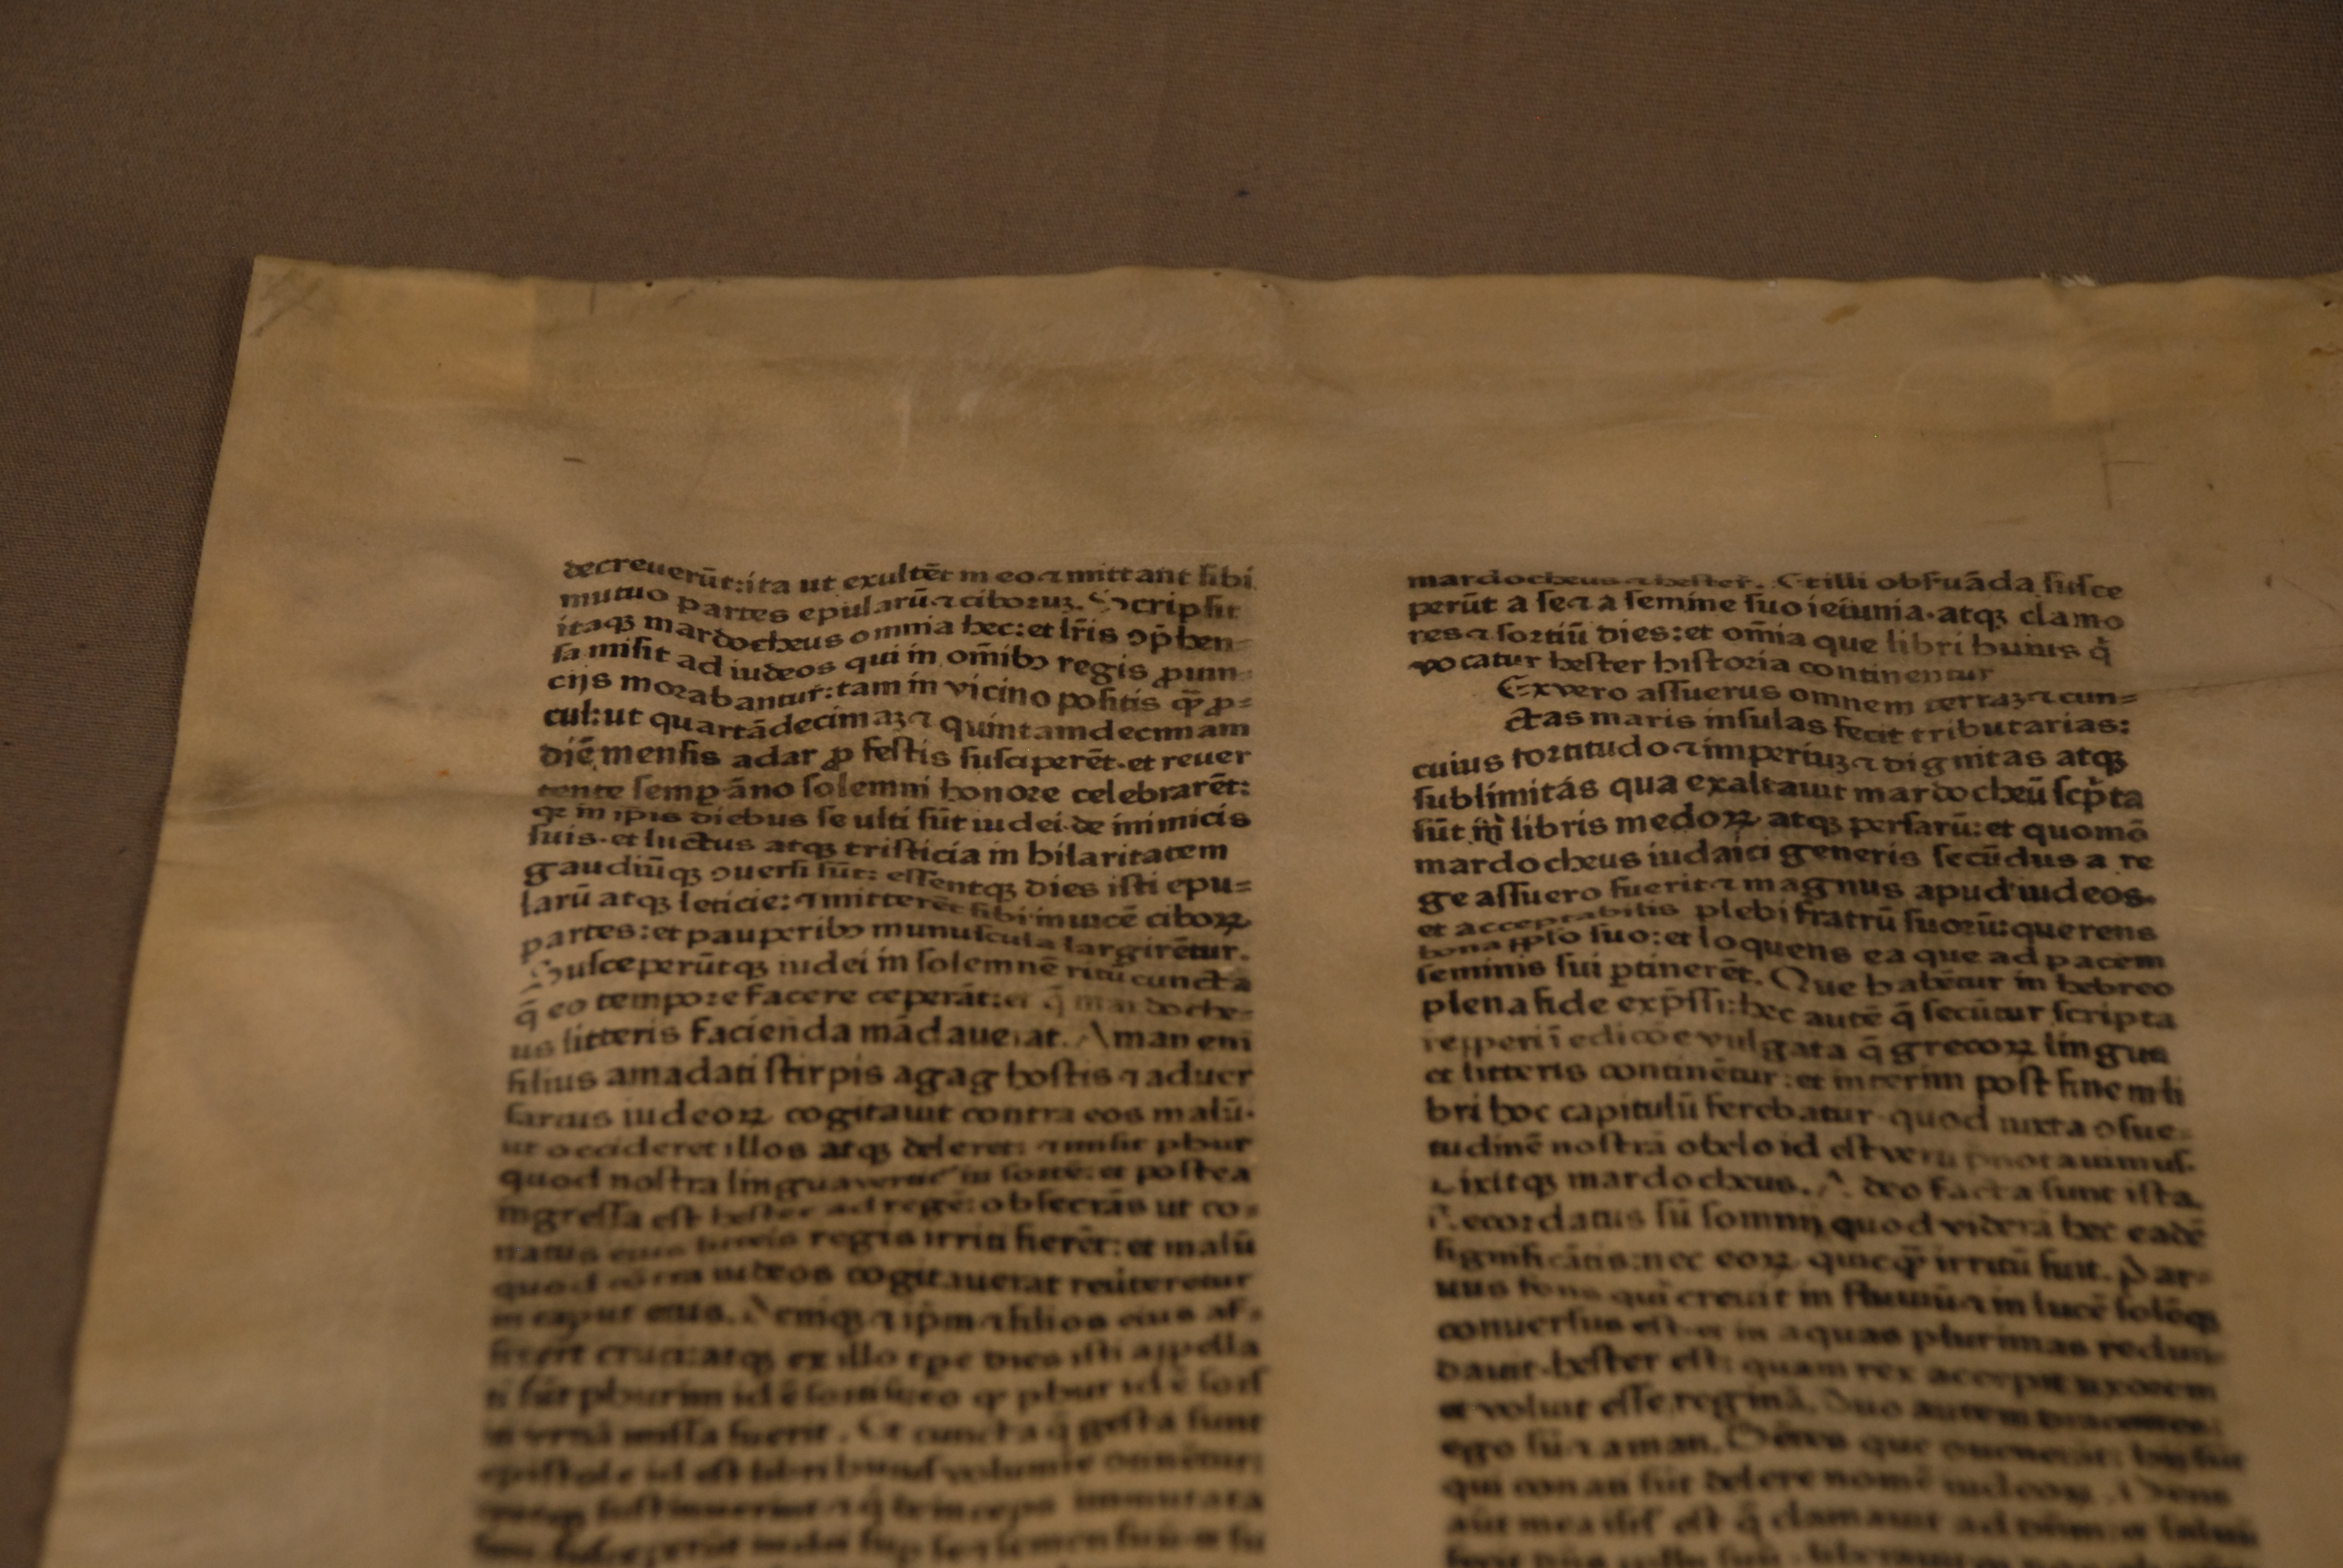 decreuerūt:ita ut exultēt in eo ⁊ mittant sibi
mutuo partes epularū ⁊ ciboruꝫ. Scripsit
itaqꝫ mardocheus omnia hec: et lr̄is ꝯp̄hen-
sa misit ad iudeos qui in om̄ibꝰ regis ꝓuin-
cijs morabantur: tam in vicino positis qͣ̄ ꝓ-
cul: ut quartādecimaꝫ ⁊ quintamdecimam
diē mensis adar ꝓ festis susciperēt. et reuer
tente semꝑ āno solemni honore celebrarēt:
qꝛ in ip̄is diebus se ulti sūt iudei de inimicis
suis. et luctus atqꝫ tristicia in hilaritatem
gaudiūqꝫ ꝯuersi sūt: essentqꝫ dies isti epu-
larū atqꝫ leticie: ⁊ mitterēt sibi inuicē ciboꝝ
partes: et pauperibꝰ munuscula largirētur.
Susceperūtqꝫ iudei in solemnē ritū cuncta
q̄ eo tempore facere ceperāt: et q̄ mardoche-
us litteris facienda mādauerat. Aman eni
filius amadati stirpis agag hostis ⁊ aduer
sarius iudeoꝝ cogitauit contra eos malū.
ut occideret illos atqꝫ deleret: ⁊ misit phur
quod nostra lingua in sortē: et postea
ingressa est hester ad regē: obsecrās ut co-
natus eius litteris regis irriti fierēt: et malū
quod cōtra iudeos cogitauerat reuerteretur
in caput eius. Deniqꝫ ⁊ ip̄m ⁊ filios eius af-
cruci: atqꝫ ex illo tp̄e dies isti appella
ti sūt phurim id ē sortiū: eo qꝛ phur id ē sors
in urnā missa fuerit. Et cuncta q̄ gesta sunt
epistole id est libri huius volumine
⁊ q̄ deinceps immutata
iudei suū
mardocheus ⁊ hester. Et illi obsruāda susce
perūt a se ⁊ a semine suo ieiunia. atqꝫ clamo
res ⁊ sortiū dies: et om̄ia que libri huius q̄
vocatur hester historia continentur
Rex vero assuerus omnem terraꝫ ⁊ cun-
ctas maris insulas fecit tributarias:
cuius fortitudo ⁊ imperiuꝫ ⁊ dignitas atqꝫ
sublimitas qua exaltauit mardocheū scp̄ta
sūt in libris medoꝝ atqꝫ persarū: et quomō
mardocheus iudaici generis secūdus a re
ge assuero fuerit ⁊ magnus apud iudeos.
et acceptabilis plebi fratrū suorū: querens
bona pp̄lo suo: et loquens ea que ad pacem
seminis sui ꝑtinerēt. Que habētur in hebreo
plena fide exp̄ssi: hec autē q̄ secūtur scripta
repperi ī edicōe vulgata q̄ grecoꝝ lingua
et litteris continētur: et interim post finem li
bri hoc capitulū ferebatur. quod iuxta ꝯsue-
tudinē nostrā obelo id est veru p̄notauimus.
Dixitqꝫ mardocheus. A deo facta sunt ista.
Recordatus sū somnij quod viderā hec eadē
significātis: nec eoꝝ quicqͣ̄ irritū fuit. Par-
uus fons qui creuit in fluuiū ⁊ in lucē solēqꝫ
conuersus est. et in aquas plurimas redun-
dauit. hester est: quam rex accepit uxorem
et voluit esse reginā. Duo autem dracones:
ego sū ⁊ aman. que ꝯuenerāt: hij sūt
qui conati sūt delere nomē iudeoꝝ.
aūt mea isrl̄ est q̄ clamauit ad dn̄m: ⁊ saluū